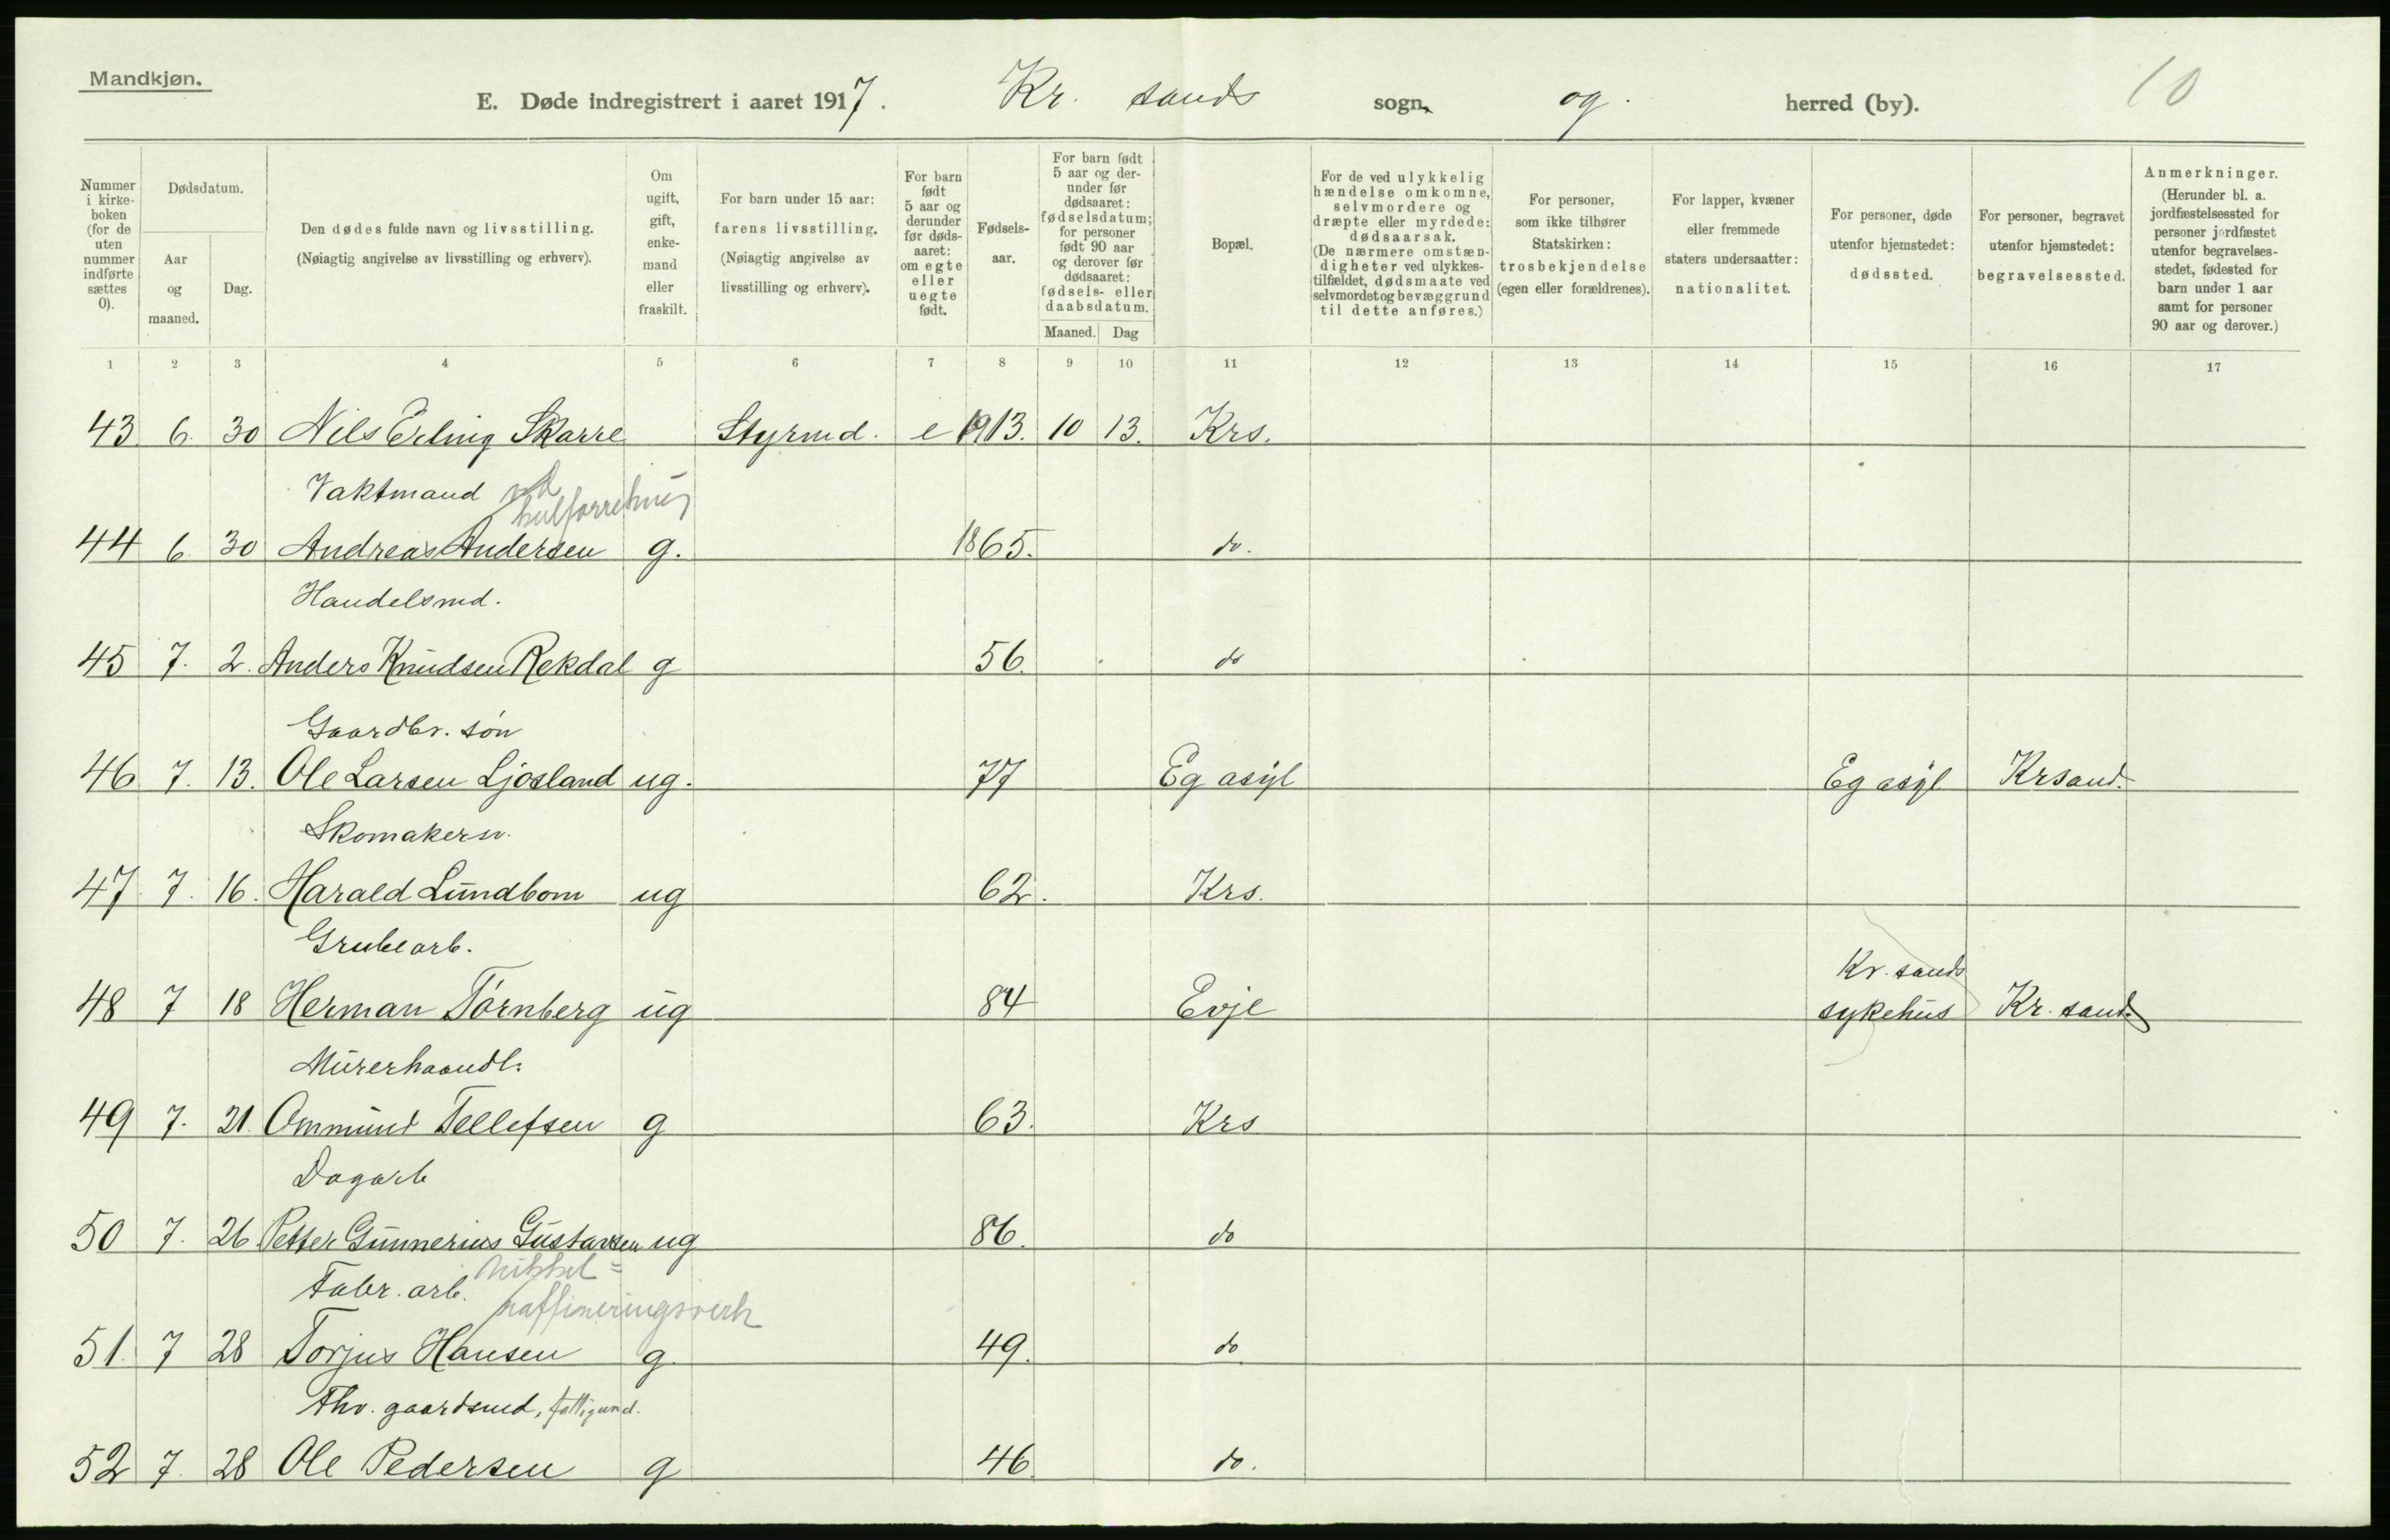 Mandkjøn.
E. Døde indregistrert i aaret 1917. Kr. sands sogn og herred (by). 10
Nummer i kirke-boken (for de uten nummer indførte sættes 0).
Dødsdatum.
Aar og maaned.
Dag.
Den dødes fulde navn og livsstilling.
(Nøiagtig angivelse av livsstilling og erhverv).
Om ugift, gift, enke-mand eller fraskilt.
For barn under 15 aar: farens livsstilling.
(Nøiagtig angivelse av livsstilling og erhverv).
For barn født 5 aar og derunder før døds-aaret: om egte eller uegte født.
Fødsels-aar.
For barn født 5 aar og der-under før dødsaaret: fødselsdatum; for personer født 90 aar og derover før dødsaaret: fødsels- eller daabsdatum.
Maaned. Dag
Bopæl.
For de ved ulykkelig hændelse omkomne, selvmordere og dræpte eller myrdede: dødsaarsak.
(De nærmere omstæn-digheter ved ulykkes-tilfældet, dødsmaate ved selvmordet og bevæggrund til dette anføres.)
For personer, som ikke tilhører Statskirken: trosbekjendelse (egen eller forældrenes).
For lapper, kvæner eller fremmede staters undersaatter: nationalitet.
For personer, døde utenfor hjemstedet: dødssted.
For personer, begravet utenfor hjemstedet: begravelsessted.
Anmerkninger.
(Herunder bl. a. jordfæstelsessted for personer jordfæstet utenfor begravelses-stedet, fødested for barn under 1 aar samt for personer 90 aar og derover.)
1 2 3 4 5 6 7 8 9 10 11 12 13 14 15 16 17
43 6. 30 Nils Erling Skarre Styrmd. e 1913. 10 13. Krs.
Vaktmand ved
44 6. 30 Andreas Andersen g. 1865. do.
Handelsmd.
45 7. 2. Anders Knudsen Rekdal g 56. do
Gaardbr. søn
46 7. 13. Ole Larsen Ljosland ug. 77 Eg asyl Eg asyl Krsand.
Skomakersv.
47 7. 16. Harald Lundbom ug 62. Krs.
Grubearb.
Kr. sands
48 7 18 Herman Törnberg ug 84 Evje sykehus Kr. sand.
Murerhaandl.
49 7. 21. Ommund Tellefsen g 63. Krs
Dagarb
50 7. 26 Petter Gunnerius Gustavsen ug 86. do
Fabr. arb. Nikkel=
raffineringsverk
51. 7 28 Torjus Hansen g. 49. do
Fhv. gaardsmd, fattigund.
52 7. 28 Ole Pedersen g 46. do.